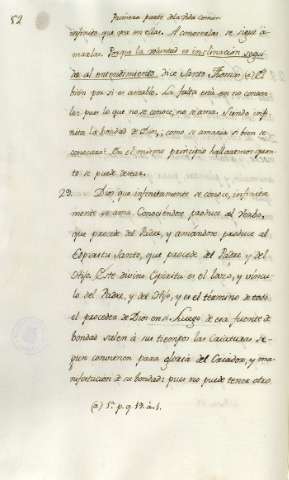 52
Primera parte de la Vida
infinito que ay en ellas. A conocerlas se sigue a-
marlas. Porque la voluntad es inclinación segui-
da al entendimiento, dice Santo Thomás (a) El
bien por si es amable. La falta está en no conocer-
lo: por lo que no se conoce, no se ama. Siendo infi-
nita la bondad de Dios, como se amaria si bien se
conociera? En el mismo principio hallaremos quan-
to se puede desear.
29. Dios que infinitamente se conoce, infinita-
mente se ama. Conociendose produce al Verbo,
que procede del Padre, y amandose produce al
Espiritu Santo, que procede del Padre y del
Hijo. Este divino Espiritu es el lazo, y vincu-
lo del Padre, y del Hijo, y es el término de todo
el proceder de Dios en si. Luego de esta fuente de
bondad salen à sus tiempos las Criaturas se-
gun convienen para gloria del Criador, y ma-
nifestacion de su bondad: pues no puede tener otro
(a) 1ª. p. q. 19. a. 1.